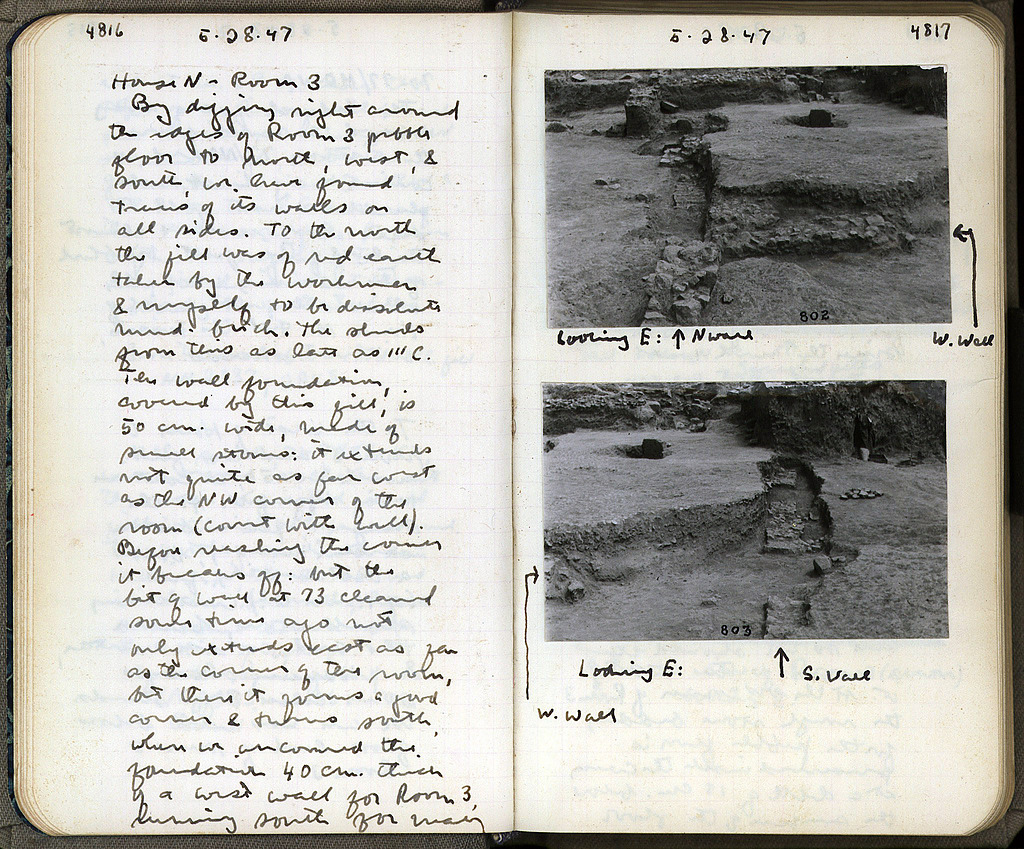 4816
5·28·47
House N - Room 3
By digging right around
the edges of Room 3 pebble
floor to north, west, &
south, we have found
traces of its walls on
all sides. To the north
the fill was of red earth
taken by the workmen
& myself to be dissolved
mud-brick. The sherds
from this as late as III C.
The wall foundation,
covered by this fill, is
50 cm. wide, made of
small stones: it extends
not quite as far west
as the NW corner of the
room (court with well).
Before reaching the corner
it breaks off: but the
bit of wall at 73 cleaned
some time ago not
only extends east as far
as the corner of the room,
but then it forms a good
corner & turns south,
when we uncovered the
foundation 40 cm. thick
of a west wall for Room 3,
running south for many
5·28·47
4817
802
Looking E: ↑ N wall
W. Wall
803
Looking E:
↑ S. Wall
W. Wall